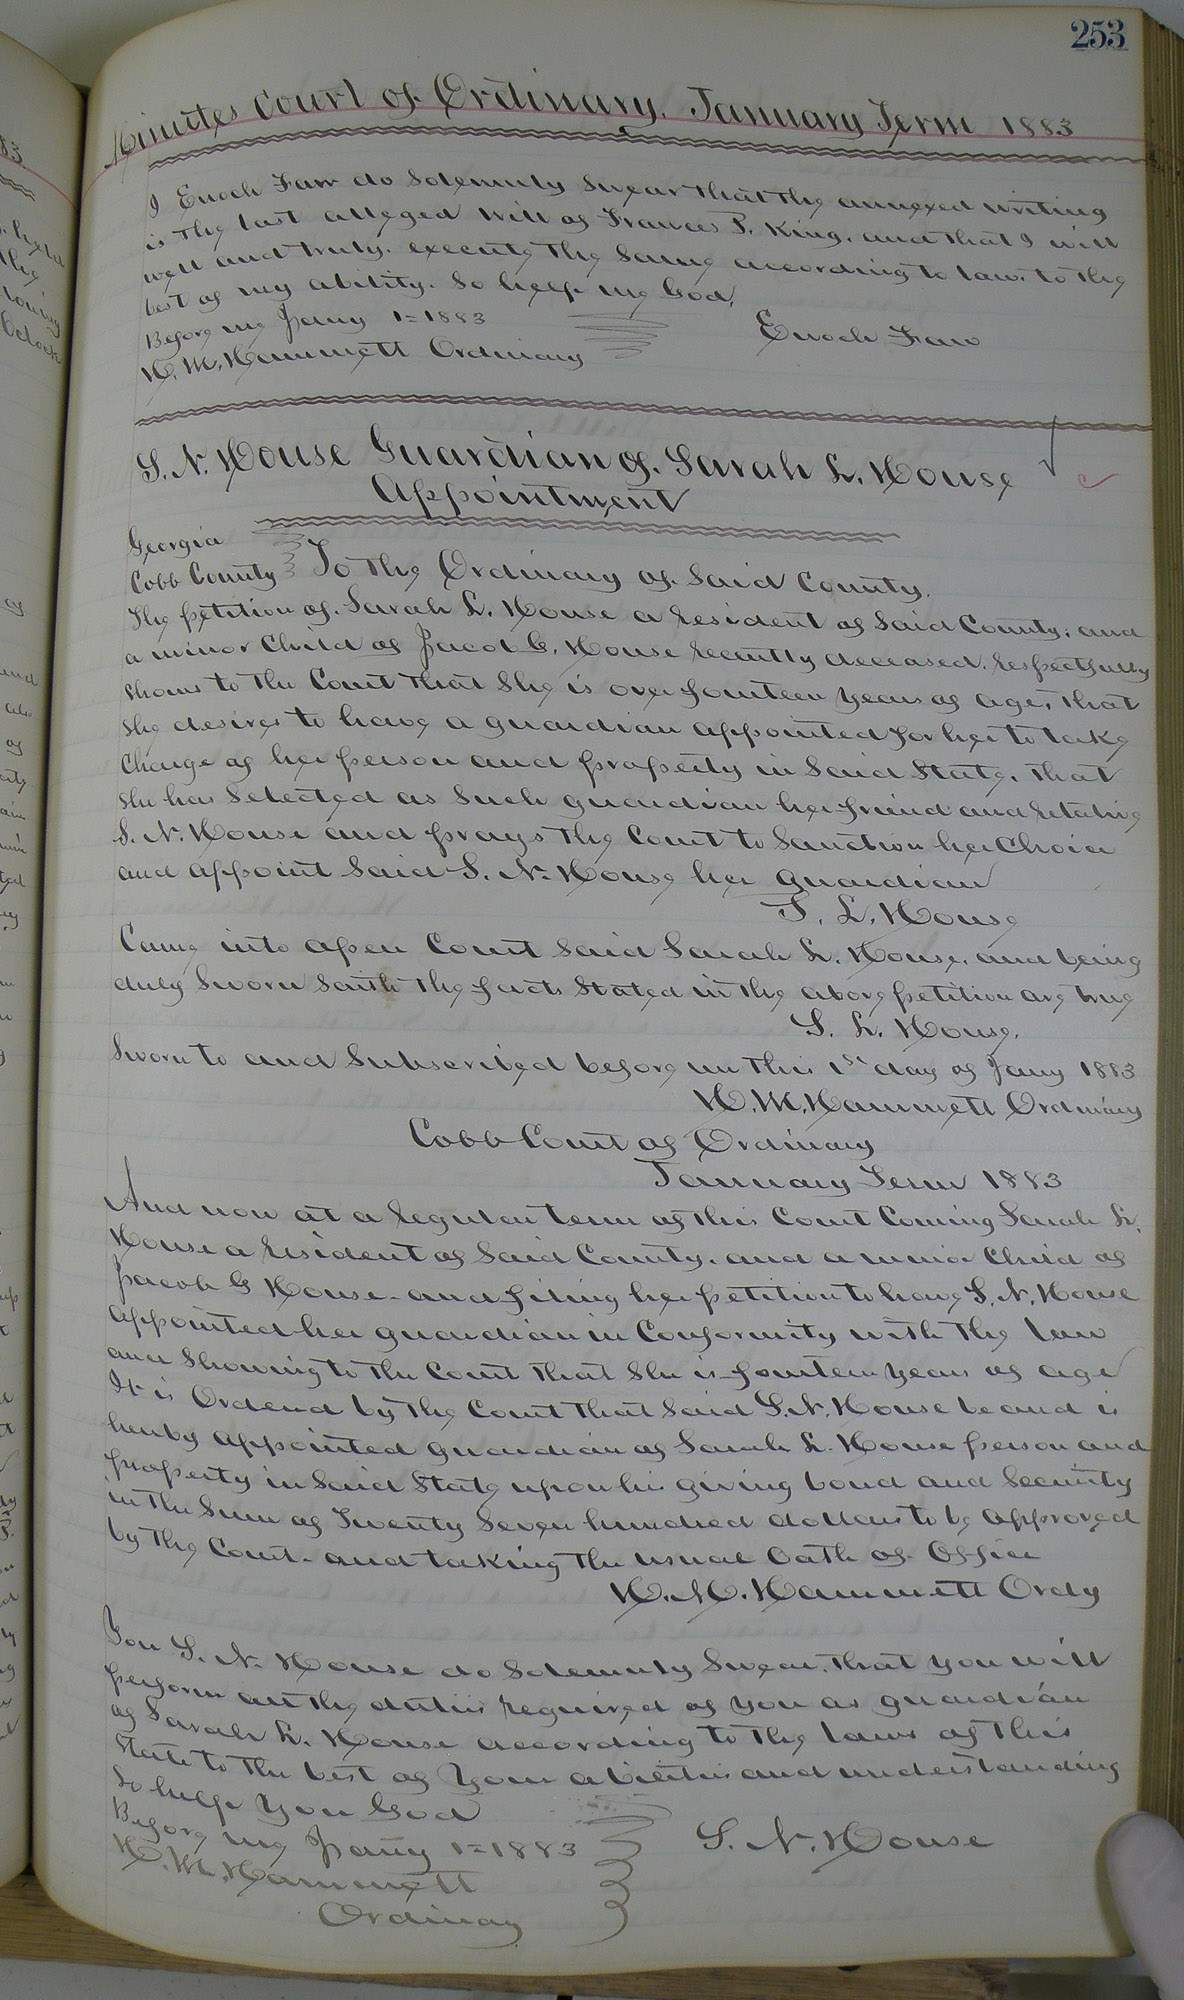 253
Minutes Court of Ordinary. January Term 1883
I Enoch Faw do Solemnly Swear that the annexed writing
is the last alleged Will of Frances P. King. and that I will
well and truly. execute the Same according to law. to the
best of my ability. So help me God.
Before me Jany 1= 1883
Enoch Faw
H. M. Hammett Ordinary
S. N. House Guardian of. Sarah L. House
Appointment
Georgia
Cobb County To the Ordinary of. Said County.
The petition of. Sarah L. House a resident of Said County, and
a minor Child of Jacob G. House recently deceased. respectfully
shows to the Court that She is over fourteen years of age, that
She desires to have a guardian appointed for her to take
Charge of her person and property in Said State. that
She has Selected as Such guardian her friend and relative
S. N. House and prays the Court to Sanction her Choice
and appoint Said S. N. House her guardian
S. L. House
Came into open Court Said Sarah L. House. and being
duly Sworn Saith the facts Stated in the above petition are true
S. L. House.
Sworn to and Subscribed before me this 1st day of Jany 1883
H. M. Hammett Ordinary
Cobb Court of Ordinary
January Term 1883
And now at a regular term of this Court Coming Sarah L.
House a resident of Said County. and a minor Child of
Jacob G House. and filing her petition to have S. N. House
appointed her guardian in Conformity with the law
and Showing to the Court that She is fourteen years of age
It is Ordered by the Court that Said S. N. House be and is
hereby appointed guardian of Sarah L. House person and
property in Said State upon his giving bond and Security
in the Sum of Twenty Seven hundred dollars to be approved
by the Court. and taking the usual Oath of Office
H. M. Hammett Ordy
You S. N. House do Solemnly Swear. that you will
perform all the duties required of you as guardian
of Sarah L. House according to the laws of this
State to the best of your abilities and understanding
So help you God
Before me Jany 1= 1883
S. N. House
H. M. Hammett
Ordinary